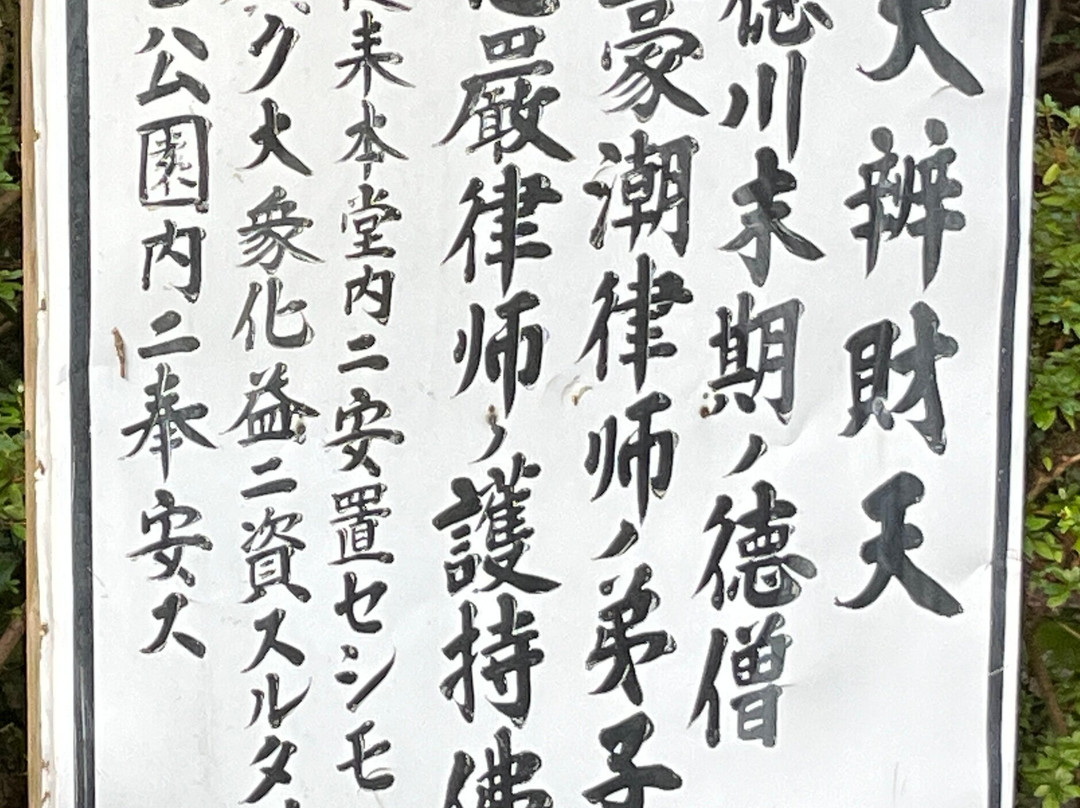 大辨財天
徳川末期ノ德僧
豪潮律师ノ弟子
嚴律师ノ護持佛
来本堂内ニ安置セシモ
ク大衆化益ニ資スルタ
公園内ニ奉安ス